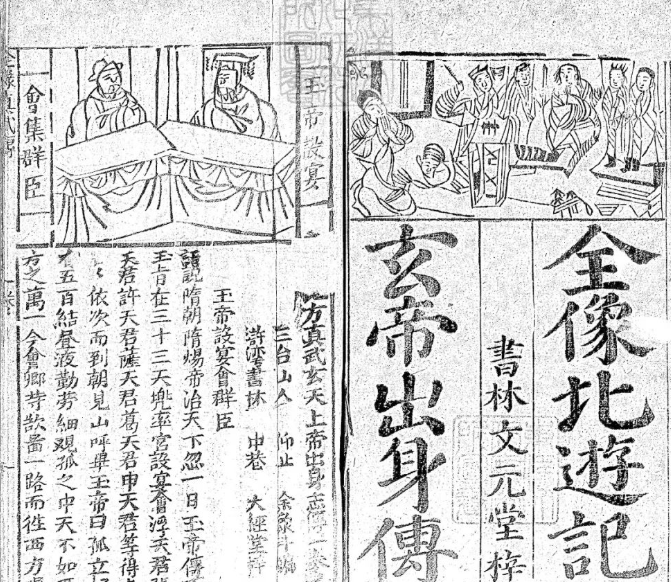 全像北遊記
書林文元堂梓
玄帝出身傳
玉帝設宴
會集群臣
方真武玄天上帝出身志傳一卷
三台山人 仰止 余象斗編
書林 中巷 大經堂梓
玉帝設宴會群臣
話說隋朝隋煬帝治天下忽一日玉帝傳
玉旨在三十三天兠率宮設宴會天君
天君許天君薩天君葛天君申天君等得
依次而到朝見山呼畢玉帝曰孤立
五百結晝夜勤劳細覌孤之中天不如
方之萬一今會卿等欲啚一路而徃西方